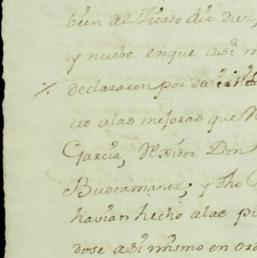 bien al citado dia diez
y nuebe enque asi m
declararon por de
to alas mejoras que
Garcia, Don
Bustamante; y dho
havian hecho alas
dose asi mismo en